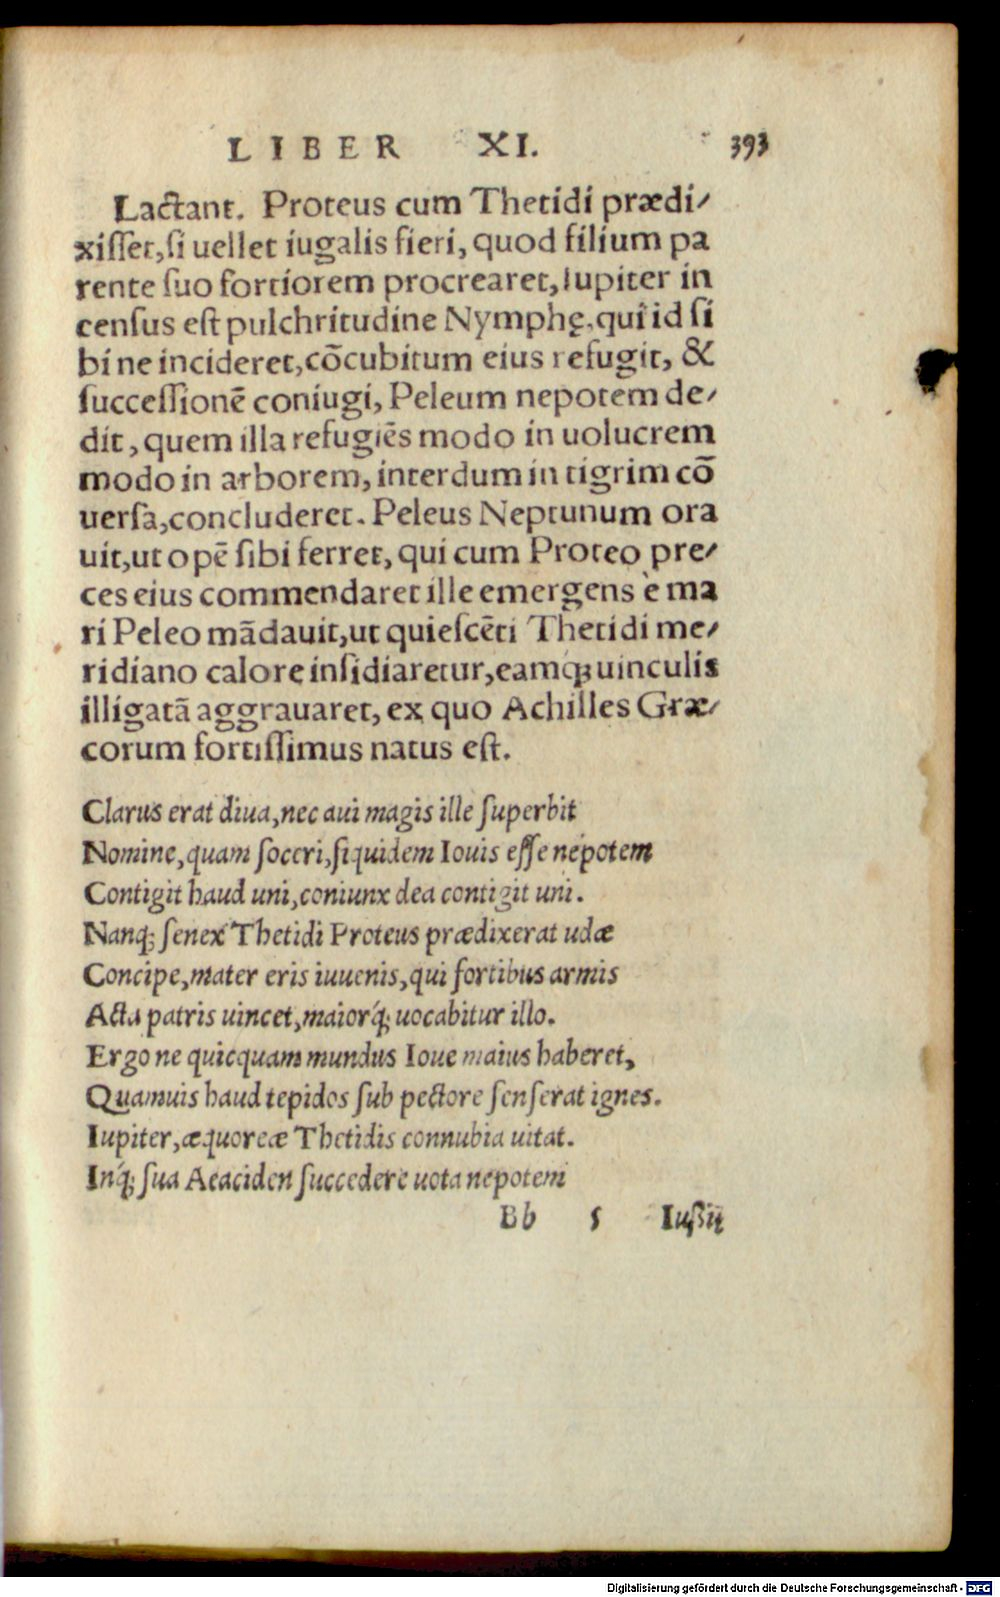 LIBER XI. 393
Lactant. Proteus cum Thetidi prædi/
xisset, si uellet iugalis fieri, quod filium pa
rente suo fortiorem procrearet, Iupiter in
census est pulchritudine Nymphę, qui id si
bi ne incideret, cõcubitum eius refugit, &
successionẽ coniugi, Peleum nepotem de/
dit, quem illa refugiẽs modo in uolucrem
modo in arborem, interdum in tigrim cõ
uersa, concluderet. Peleus Neptunum ora
uit, ut opẽ sibi ferret, qui cum Proteo pre/
ces eius commendaret ille emergens è ma
ri Peleo mãdauit, ut quiescẽti Thetidi me/
ridiano calore insidiaretur, eamq́; uinculis
illigatã aggrauaret, ex quo Achilles Græ/
corum fortissimus natus est.
Clarus erat diua, nec aui magis ille superbit
Nomine, quam soceri, siquidem Iouis esse nepotem
Contigit haud uni, coniunx dea contigit uni.
Nanq; senex Thetidi Proteus prædixerat udæ
Concipe, mater eris iuuenis, qui fortibus armis
Acta patris uincet, maiorq́; uocabitur illo.
Ergo ne quicquam mundus Ioue maius haberet,
Quamuis haud tepidos sub pectore senserat ignes.
Iupiter, æquoreæ Thetidis connubia uitat.
Inq́; sua Aeaciden succedere uota nepotem
Bb 5 Iußit
Digitalisierung gefördert durch die Deutsche Forschungsgemeinschaft - DFG